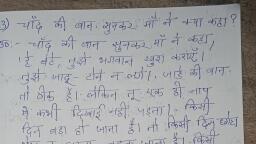 3) चाँद की बात सुनकर माँ ने क्या कहा?
उ०:- चाँद की बात सुनकर माँ ने कहा,
हे बेटे, तुझे भगवान खुश
तुझे जादू-टोने न लगें। जाड़े की बात
तो ठीक है। लेकिन तू एक ही नाप
में कभी दिखाई नहीं पड़ता। किसी
दिन बड़ा हो जाता है। तो किसी दिन छोटा
जाता है। किसी